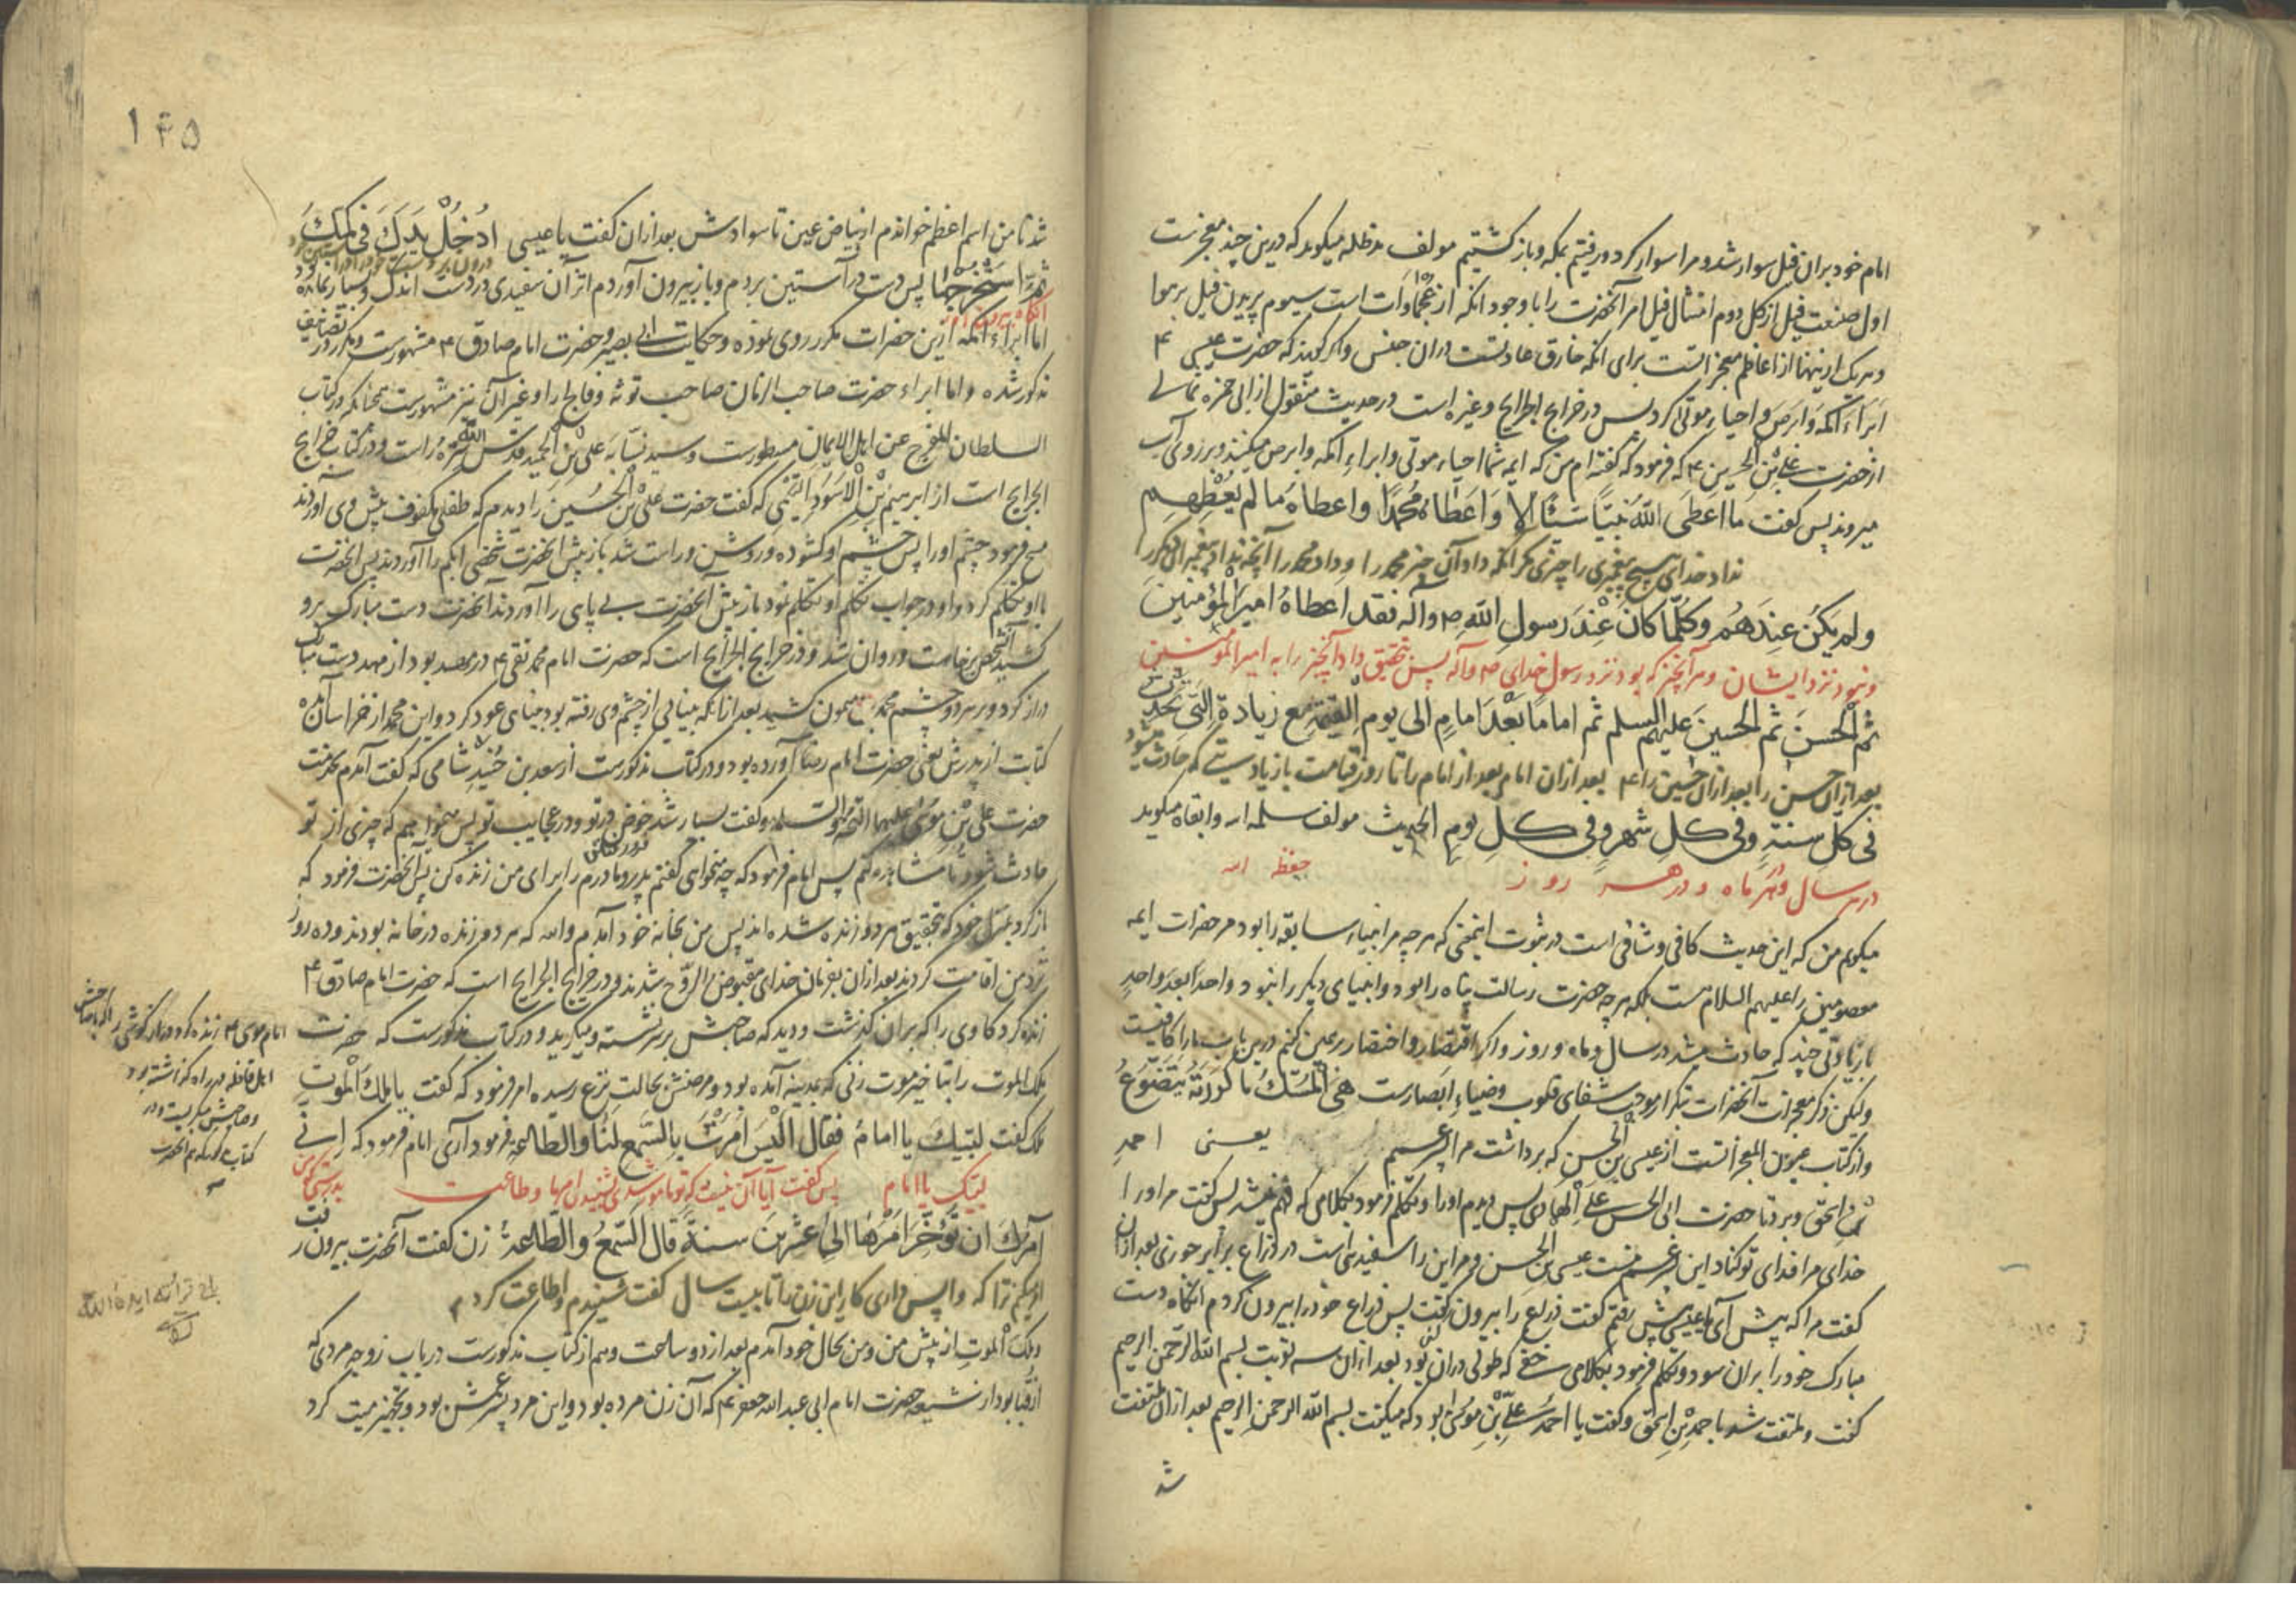 امام خود بران فیل سوار شد و مرا سوار کرد و رفتیم بمکه و باز کشتیم مولف مدظله میکوید که درین چند معجز ست
اول صنعت فیل از کل دوم امتثال فیل امر آنحضرت را با وجود انکه از عجماوات است سیوم پریدن فیل بر هوا
و هر یک از ینها از اعاظم معجزاتست برای انکه خارق عادتست دران جنس و اکر کویند که حضرت عیسی ۴
ابراء اکمه و ابرص و احیاء موتی کرد پس در خرایج الجرایح و غیره است در حدیث منقول از ابی حمزه ثمالی
از حضرت علی بن الحسین ۴ که فرمود که کفته ام من که ایمه شما احیاء موتی و ابراء اکمه و ابرص میکنند و بر روی آب
میروند پس کفت ما اعطی الله نبیا شیئا الا و اعطاه محمدا و اعطاه ما لم یعطهم
نداد خدای هیچ پیغمبری را چیزی مکر انکه داد آن چیز محمد را و داد محمد را آنچه نداد پیغمبران دیکر را
ولم یکن عندهم و کلما کان عند رسول الله ص و آله فقد اعطاه امیر المؤمنین
و نبود نزد ایشان و هر آنچیز که بود نزد رسول خدای ص و آله پس بتحقیق داد آنچیز را به امیر المؤمنین
ثم الحسن ثم الحسین علیهم السلم ثم اماما بعد امام الی یوم القیمة مع زیادة التی تحدث
بعد ازان حسن را بعد ازان حسین را ۴ بعد ازان امام بعد از امام را تا روز قیامت با زیادتیی که حادث میشود
فی کل سنة و فی کل شهر و فی کل یوم الحدیث مولف سلمه الله و ابقاه میکوید
در هر سال و در هر ماه و در هر روز حفظ الله
میکویم من که این حدیث کافی و شافی است در ثبوت اینمعنی که هر چه مر انبیاء سابقه را بود مر حضرات ایمه
معصومین را علیهم السلام هست بلکه هر چه حضرت رسالت پناه را بود و انبیای دیکر را نبود واحدا بعد واحد
با زیادتی چند که حادث میشد در سال و ماه و روز و اکر اقتصار و اختصار بر همین کنم درین باب ما را کافیست
ولیکن ذکر معجزات آنحضرات بتکرار موجب شفای قلوب و ضیاء ابصارست هی المسک ما کررته یتضوع
و از کتاب عیون المعجزاتست از عیسی بن الحسن که برداشت مرا پسر عمم یعنی احمد
بن اسحق و برد تا حضرت ابی الحسن علی الهادی پس دیدم او را و تکلم فرمود بکلامی که فهم نمیشد پس کفت مر او را
خدای مرا فدای تو کناد این پسر عم منست عیسی بن الحسن و مر این را سفیدیی است در ذراع برابر جوزی بعد ازان
کفت مرا که پیش آی یا عیسی پس رفتم کفت ذراع را بیرون کن پس ذراع خود را بیرون کردم انکاه دست
مبارک خود را بران سود و تکلم فرمود بکلامی خفی که طولی دران بود بعد ازان سه نوبت بسم الله الرحمن الرحیم
کفت و ملتفت شد با احمد بن اسحق و کفت یا احمد علی بن موسی بود که میکفت بسم الله الرحمن الرحیم بعد ازان ملتفت
شد
۱۴۵
شد تا من اسم اعظم خواندم از بیاض عین تا سوادش بعد ازان کفت یا عیسی ادخل یدک فی کمک
ثم استخرجها پس دست در آستین بردم و باز بیرون آوردم اثر ان سفیدی در دست اندک و بسیار نمانده
اما ابراء اکمه ازین حضرات مکرر روی نموده و حکایت ابی بصیر و حضرت امام صادق ۴ مشهورست و مکرر در تصانیف
مذکور شده و اما ابراء حضرت صاحب الزمان صاحب توثه و فالج را و غیر آن نیز مشهورست چنانکه در کتاب
السلطان المفرج عن اهل الایمان مسطورست و سید نسابه علی بن عبد الحمید قدس الله سره راست و در کتاب خرایج
الجرایح است از ابرهیم بن الاسود التیمی که کفت حضرت علی بن الحسین را دیدم که طفلی مکفوف پیش وی آوردند
مسح فرمود چشم او را پس چشم او کشوده و روشن و راست شد باز پیش آنحضرت شخصی ابکم را آوردند پس انحضرت
با او تکلم کرد و او در جواب تکلم او تکلم نمود باز پیش آنحضرت بی پایی را آوردند انحضرت دست مبارک برو
کشید آنشخص برخاست و روان شد و در خرایج الجرایح است که حضرت امام محمد تقی ۴ در مهد بود از مهد دست مبارک
دراز کرد و بر هر دو چشم محمد بن میمون کشید بعد ازانکه بینایی از چشم وی رفته بود بینایی عود کرد و این محمد از خراسان
کتابت از پدرش یعنی حضرت امام رضا آورده بود و در کتاب مذکورست از سعد بن شامی که کفت آمدم بخدمت
حضرت علی بن موسی علیهما التحیة و السلام و کفت بسیار شد خوض در تو و در عجایب تو پس میخواهیم که چیزی از تو
حادث شود تا مشاهده کنم پس امام فرمود که چه میخواهی کفتم پدر و مادرم را برای من زنده کن پس آنحضرت فرمود که
باز کرد بمنزل خود که بتحقیق هر دو زنده شده اند پس من بخانه خود آمدم والله که هر دو زنده در خانه بودند و ده روز
نزد من اقامت کردند بعد ازان بفرمان خدای مقبوض الروح شدند و در خرایج الجرایح است که حضرت امام صادق ۴
زنده کرد کاوی را که بران کذشت و دید که صاحبش بر سر نشسته و میکرید و در کتاب مذکورست که حضرت
ملک الموت را بتاخیر موت زنی که بمدینه آمده بود و مرضش بحالت نزع رسیده امر فرمود که کفت یا ملک الموت
ملک کفت لبیک یا امام فقال الیس امرت بالسمع لنا و الطاعة فرمود آری امام فرمود که انی
لبیک یا امام پس کفت آیا آن نیست که تو مامور شدی بشنیدن امر ما و طاعت بدرستیکه من
آمرک ان تؤخر امرها الی عشرین سنة قال السمع و الطاعة زن کفت آنحضرت بیرون رفت
امر میکنم ترا که واپس داری کار این زن را تا بیست سال کفت شنیدم و اطاعت کردم
و ملک الموت از پیش من و من بحال خود آمدم بعد از دو ساعت و هم از کتاب مذکورست در باب زوجه مردی که
از قبا بود از شیعه حضرت امام ابی عبد الله جعفر ۴ که آن زن مرده بود و این مرد پسر عمش بود و تجهیز میت کرد
امام موسی ۴ زنده کرد دراز کوشی را که صاحبش
اهل قافله در راه کذاشته بود
و صاحبش میکریست و در
کتاب که هم انحضرت